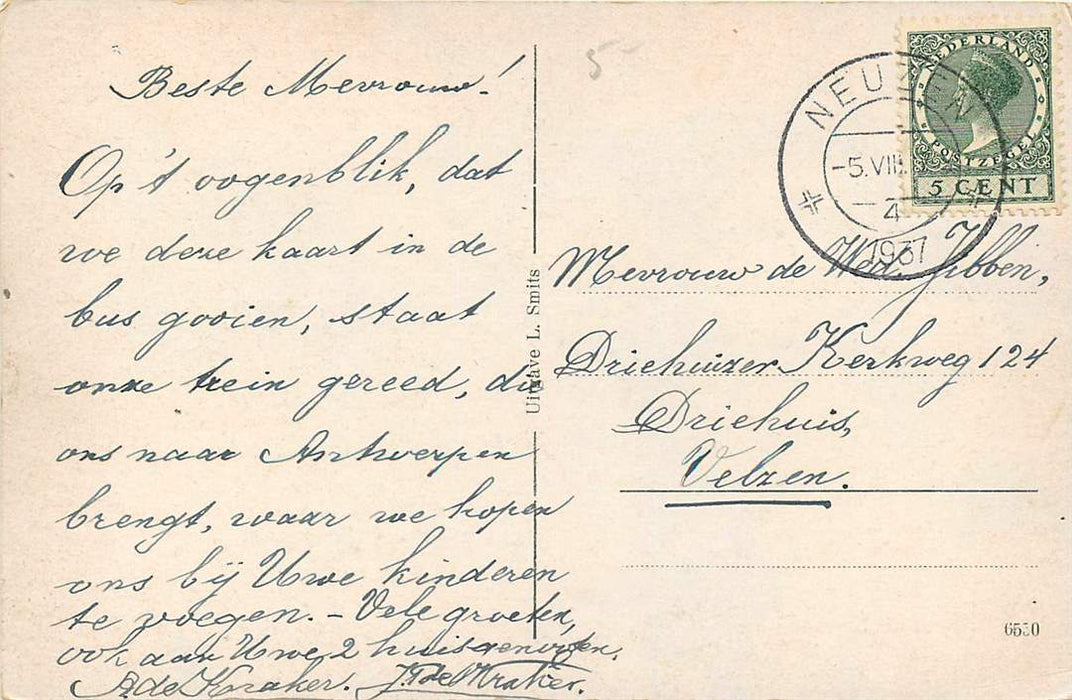 Beste Mevrouw!
Op 't oogenblik, dat
we deze kaart in de
bus gooien, staat
onze trein gereed, die
ons naar Antwerpen
brengt, waar we hopen
ons bij Uwe kinderen
te voegen. – Vele groeten,
ook aan Uwe 2 huisgenooten.
de Kraker. de Kraker.
Uitgave L. Smits
5-
NEU EN
-5.VIII
4
1937
NEDERLAND
POSTZEGEL
5 CENT
Mevrouw de Wed. Jibben,
Driehuizer Kerkweg 124
Driehuis,
Velzen.
6530